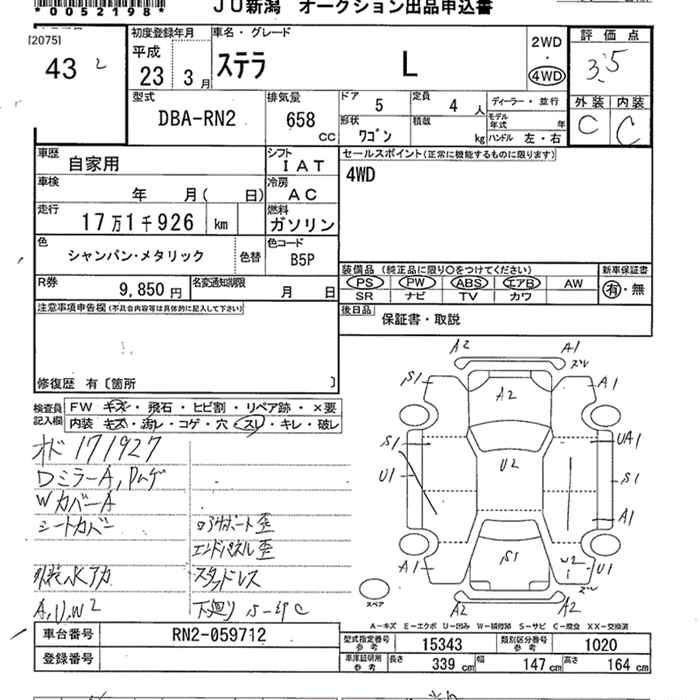 *0052198*
JU新潟 オークション出品申込書
[2075]
43 2
初度登録年月
平成
23 3月
車名・グレード
ステラ L
2WD
・
4WD
評価点
3.5
外装 内装
C C
型式
DBA-RN2
排気量
658
CC
ドア 5
定員 4 人
ディーラー・並行
形状 ワゴン
積載 kg
モデル年式 年
ハンドル 左・右
車歴 自家用
シフト IAT
車検 年 月( 日)
冷房 AC
走行 17万1千926 km
燃料 ガソリン
色 シャンパン・メタリック
色替
色コード B5P
R券 9,850円
名変通知期限 月 日
セールスポイント(正常に機能するものに限ります)
4WD
装備品 (純正品に限り○をつけてください)
新車保証書
PS PW ABS エアB AW
SR ナビ TV カワ
有・無
後日品 保証書・取説
注意事項申告欄(不具合内容等は具体的に記入して下さい)
修復歴 有〔箇所 〕
検査員記入欄
FW キズ・飛石・ヒビ割・リペア跡・×要
内装 キズ・汚レ・コゲ・穴・スレ・キレ・破レ
オド 171927
DミラーA,
WカバーA
シートカバー
外装水アカ
A,U,W2
コアサポート歪
エンドパネル歪
スタッドレス
下廻りS-
A2 A1
ズレ
S1 A2 A1
S1 UA1
U1 U2 S1
A1
A1 S1 W2 U1
ズレ
A2 A2
スペア
A-キズ E-エクボ U-凹み W-補修跡 S-サビ C-腐食 XX-交換済
車台番号 RN2-059712
登録番号
型式指定番号 参考 15343
類別区分番号 参考 1020
車庫証明用 参考 長さ 339 cm 幅 147 cm 高さ 164 cm